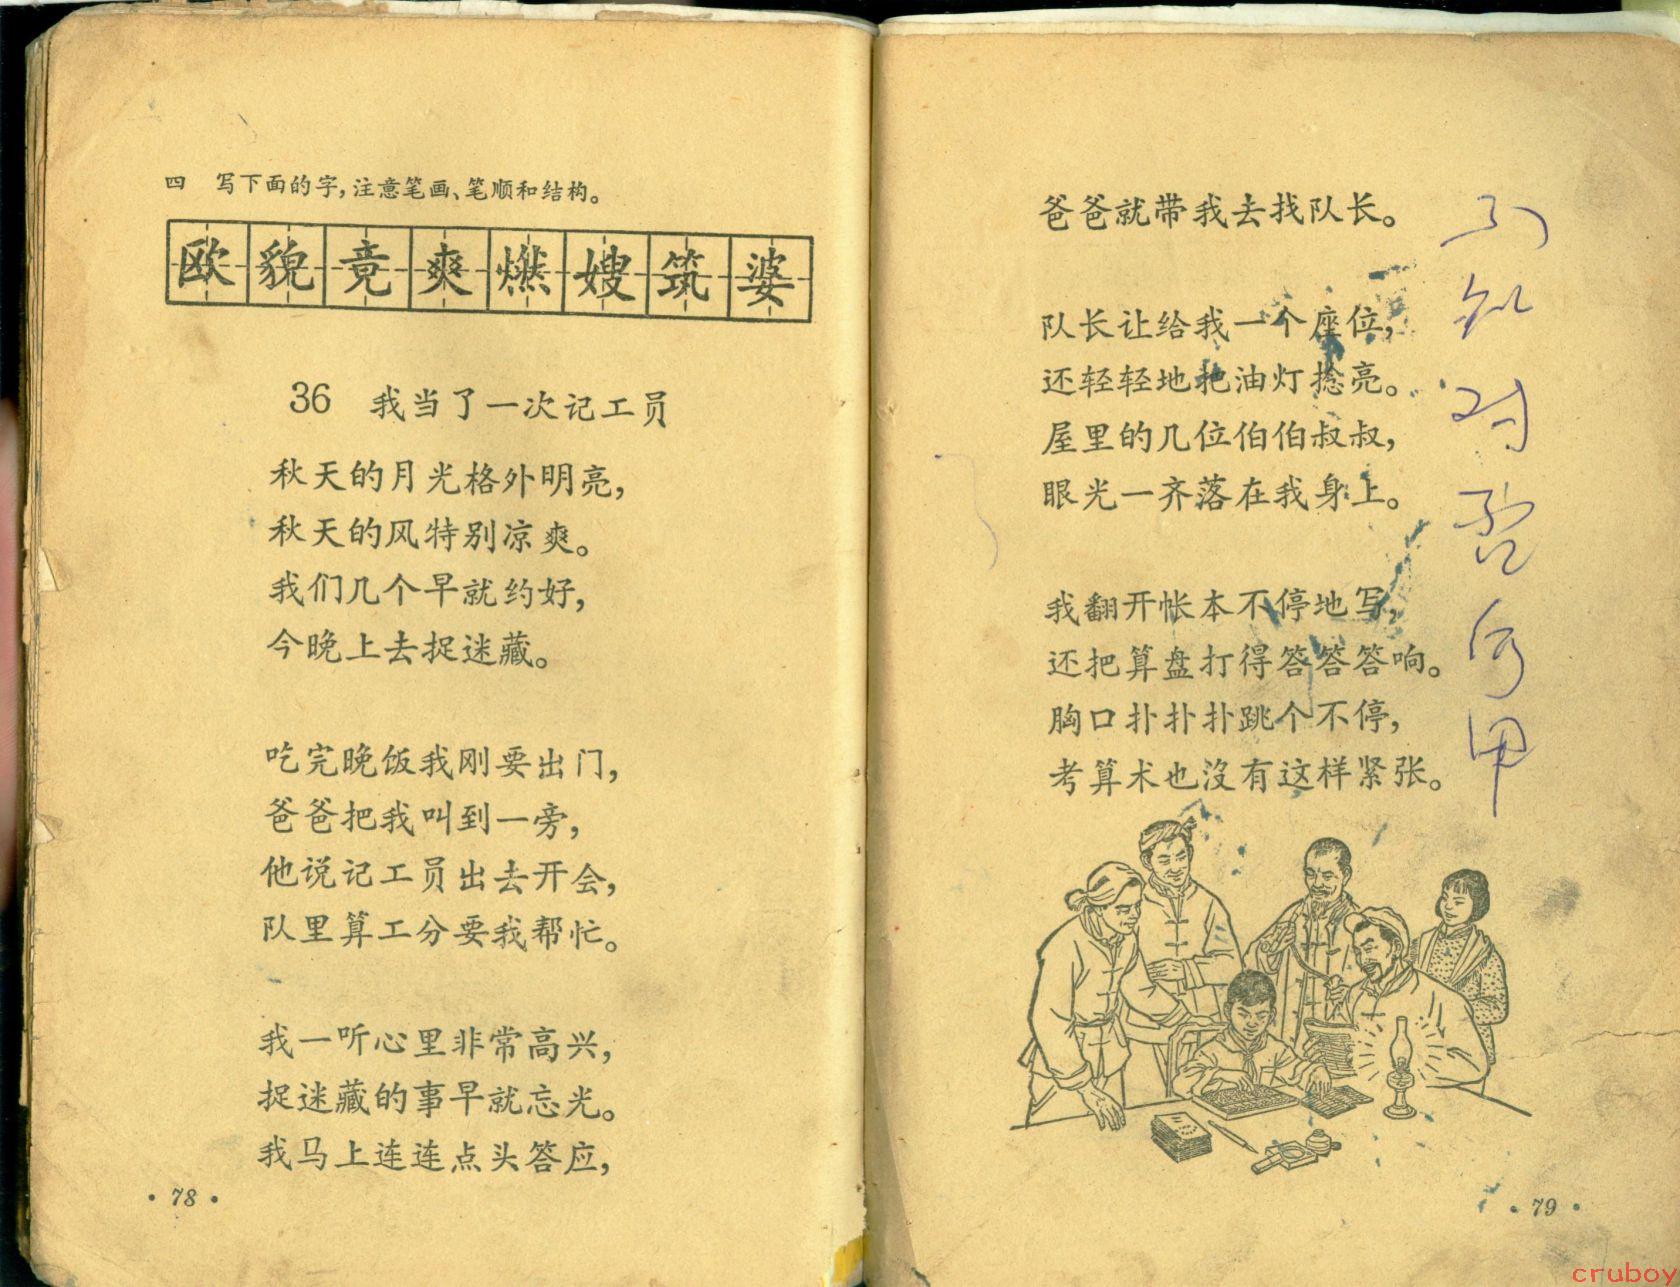 四 写下面的字,注意笔画、笔顺和结构。
欧貌竟爽燃嫂筑婆
36 我当了一次记工员
秋天的月光格外明亮,
秋天的风特别凉爽。
我们几个早就约好,
今晚上去捉迷藏。
吃完晚饭我刚要出门,
爸爸把我叫到一旁,
他说记工员出去开会,
队里算工分要我帮忙。
我一听心里非常高兴,
捉迷藏的事早就忘光。
我马上连连点头答应,
·78·
爸爸就带我去找队长。
队长让给我一个座位,
还轻轻地把油灯捻亮。
屋里的几位伯伯叔叔,
眼光一齐落在我身上。
我翻开帐本不停地写,
还把算盘打得答答答响。
胸口扑扑扑跳个不停,
考算术也沒有这样紧张。
·79·
cruboy